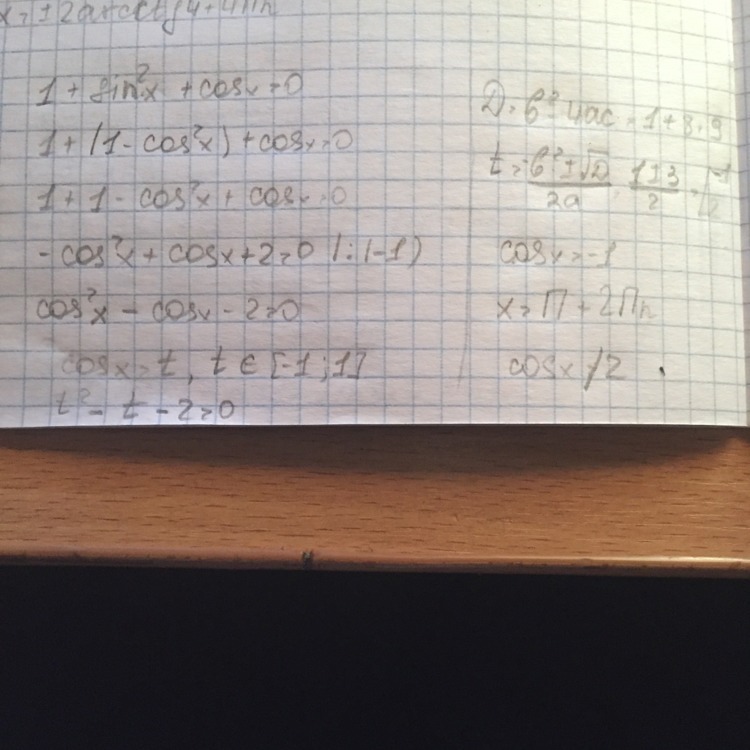 x = ± 2arcctg4 + 4πn
1 + sin²x + cosx = 0
1 + (1 - cos²x) + cosx = 0
1 + 1 - cos²x + cosx = 0
- cos²x + cosx + 2 = 0 | : (-1)
cos²x - cosx - 2 = 0
cosx = t, t ∈ [-1; 1]
t² - t - 2 = 0
D = b² - 4ac = 1 + 8 = 9
t = -b² ± √D / 2a = 1 ± 3 / 2 = [ -1 2
cosx = -1
x = π + 2πn
cosx ≠ 2